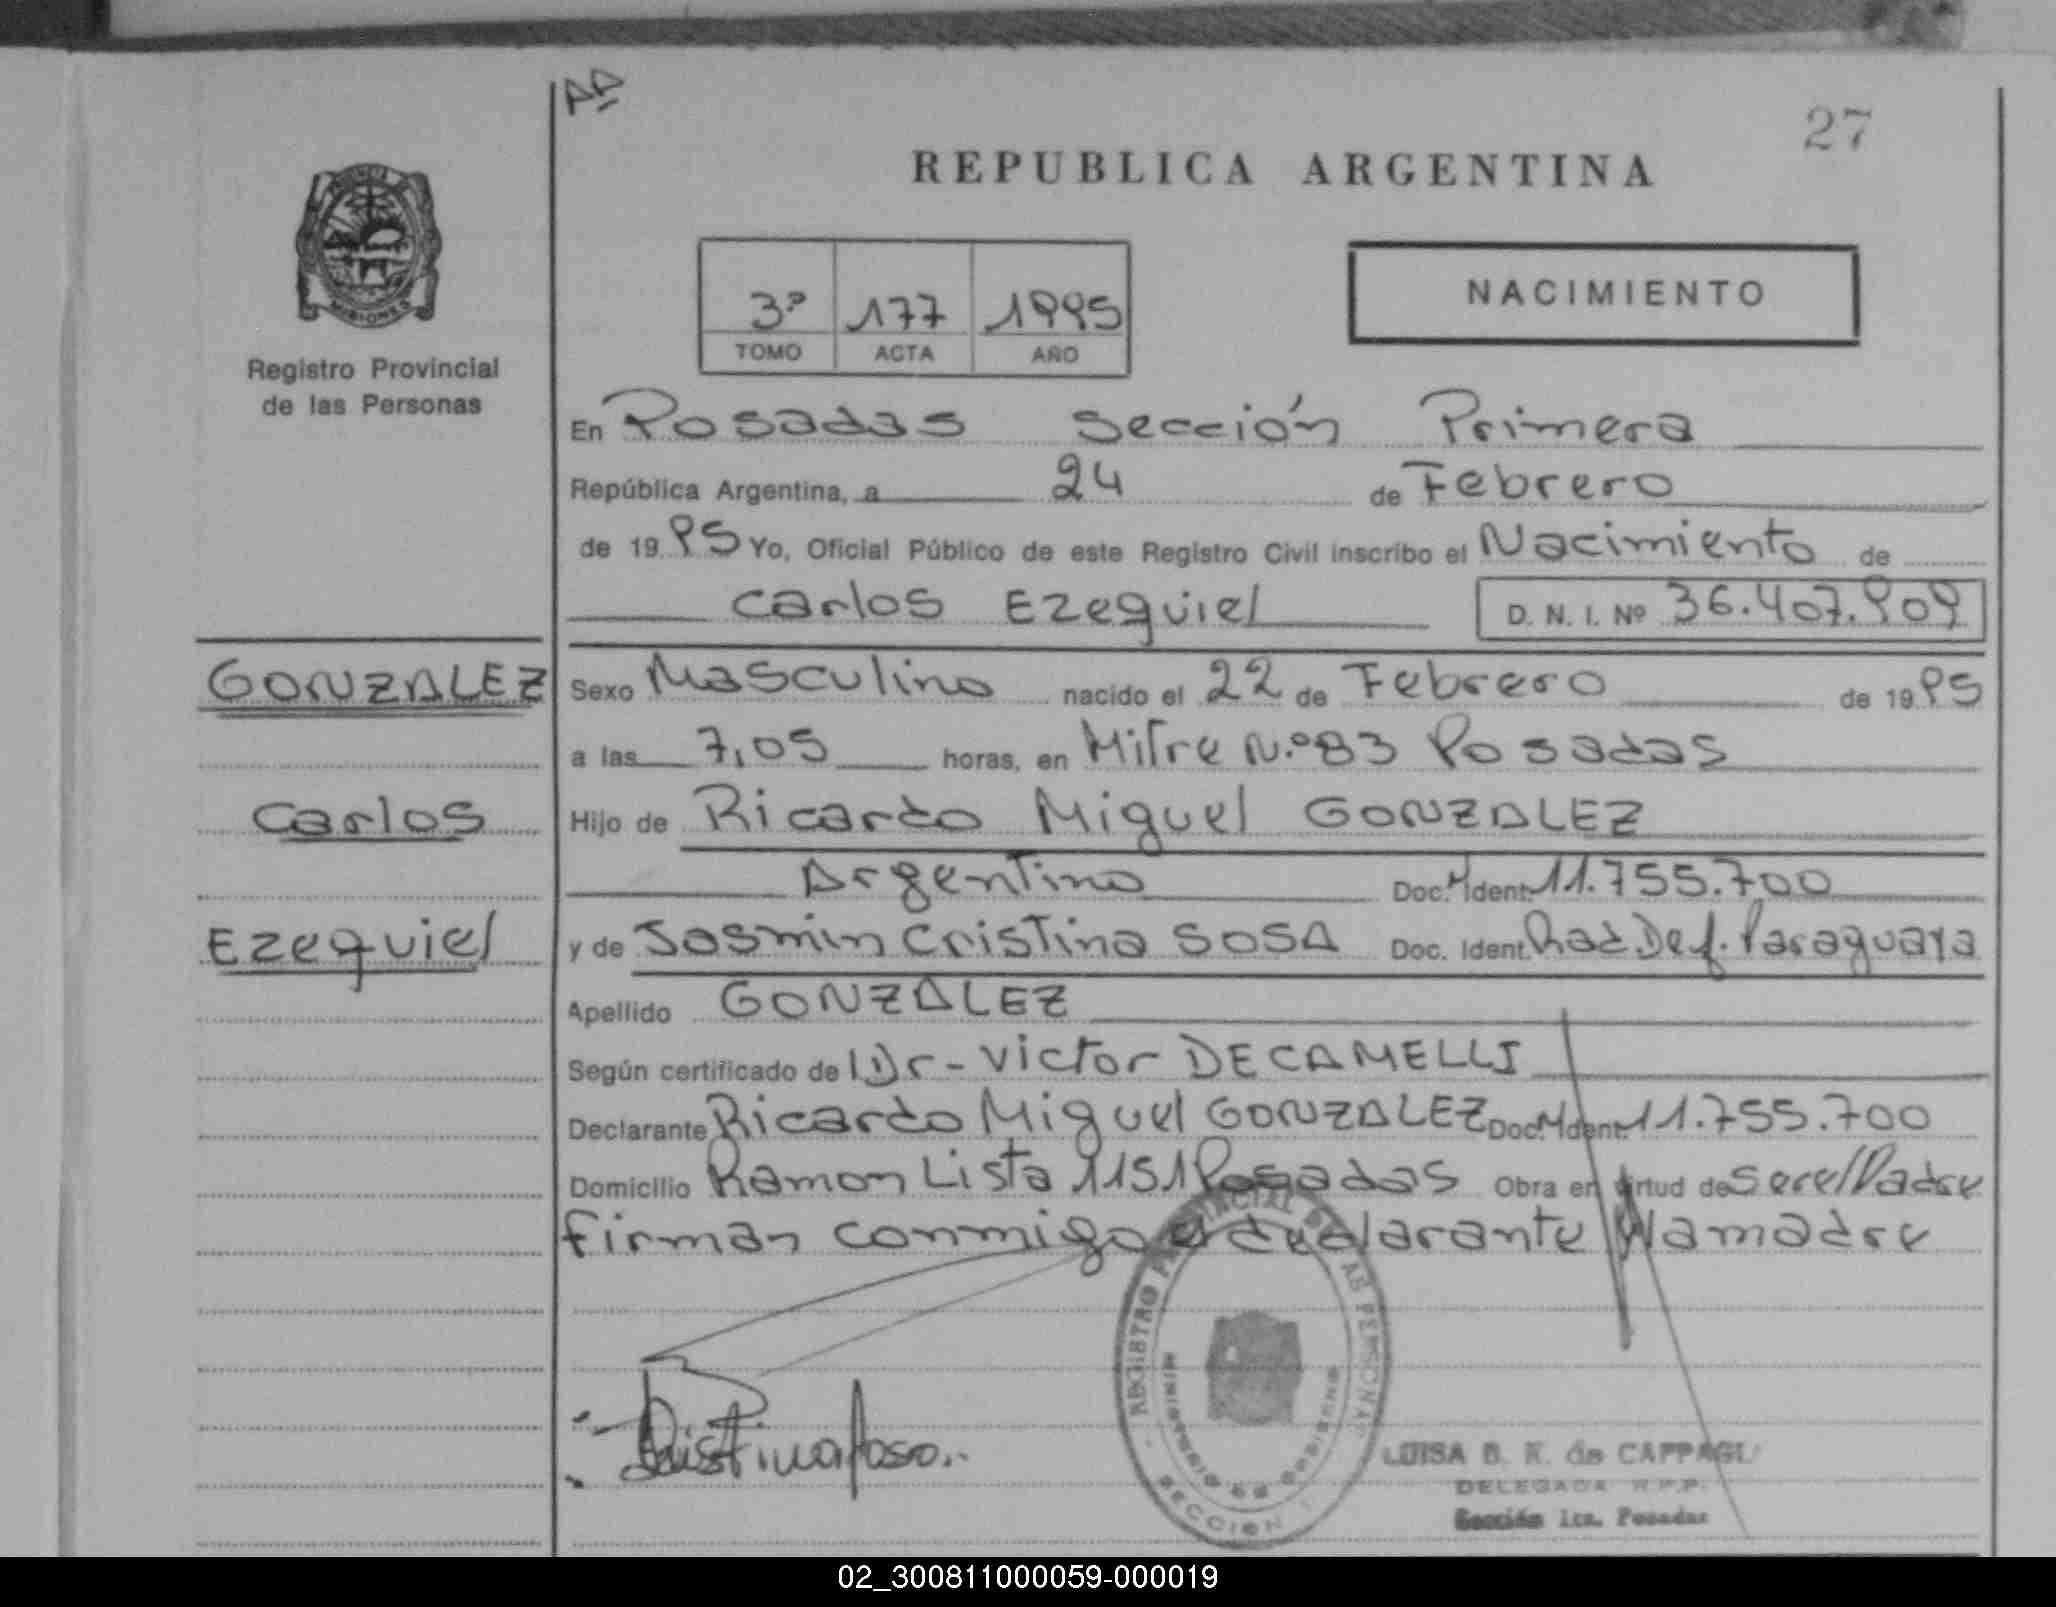 27
REPUBLICA ARGENTINA
PROVINCIA DE MISIONES
Registro Provincial
de las Personas
3º 177 1995
TOMO ACTA AÑO
NACIMIENTO
En Posadas Sección Primera
República Argentina, a 24 de Febrero
de 1995 Yo, Oficial Público de este Registro Civil inscribo el Nacimiento de
Carlos Ezequiel D. N. I. Nº 36.407.909
GONZALEZ
Carlos
Ezequiel
Sexo Masculino nacido el 22 de Febrero de 1995
a las 7,05 horas, en Mitre N.º 83 Posadas
Hijo de Ricardo Miguel GONZALEZ
Argentino Doc. M Ident. 11.755.700
y de Josmin Cristina SOSA Doc. Ident. Rad. Def. Paraguaya
Apellido GONZALEZ
Según certificado de Dr - Victor DECAMELLI
Declarante Ricardo Miguel GONZALEZ Doc. M Ident. 11.755.700
Domicilio Ramon Lista 1151 Posadas Obra en virtud de ser el Padre
Firman conmigo el declarante y la madre
REGISTRO PROVINCIAL DE LAS PERSONAS
MINISTERIO DE GOBIERNO
SECCION 1
LUISA B. K. de CAPPAGLI
DELEGADA R.P.P.
Sección 1ra. Posadas
02_300811000059-000019